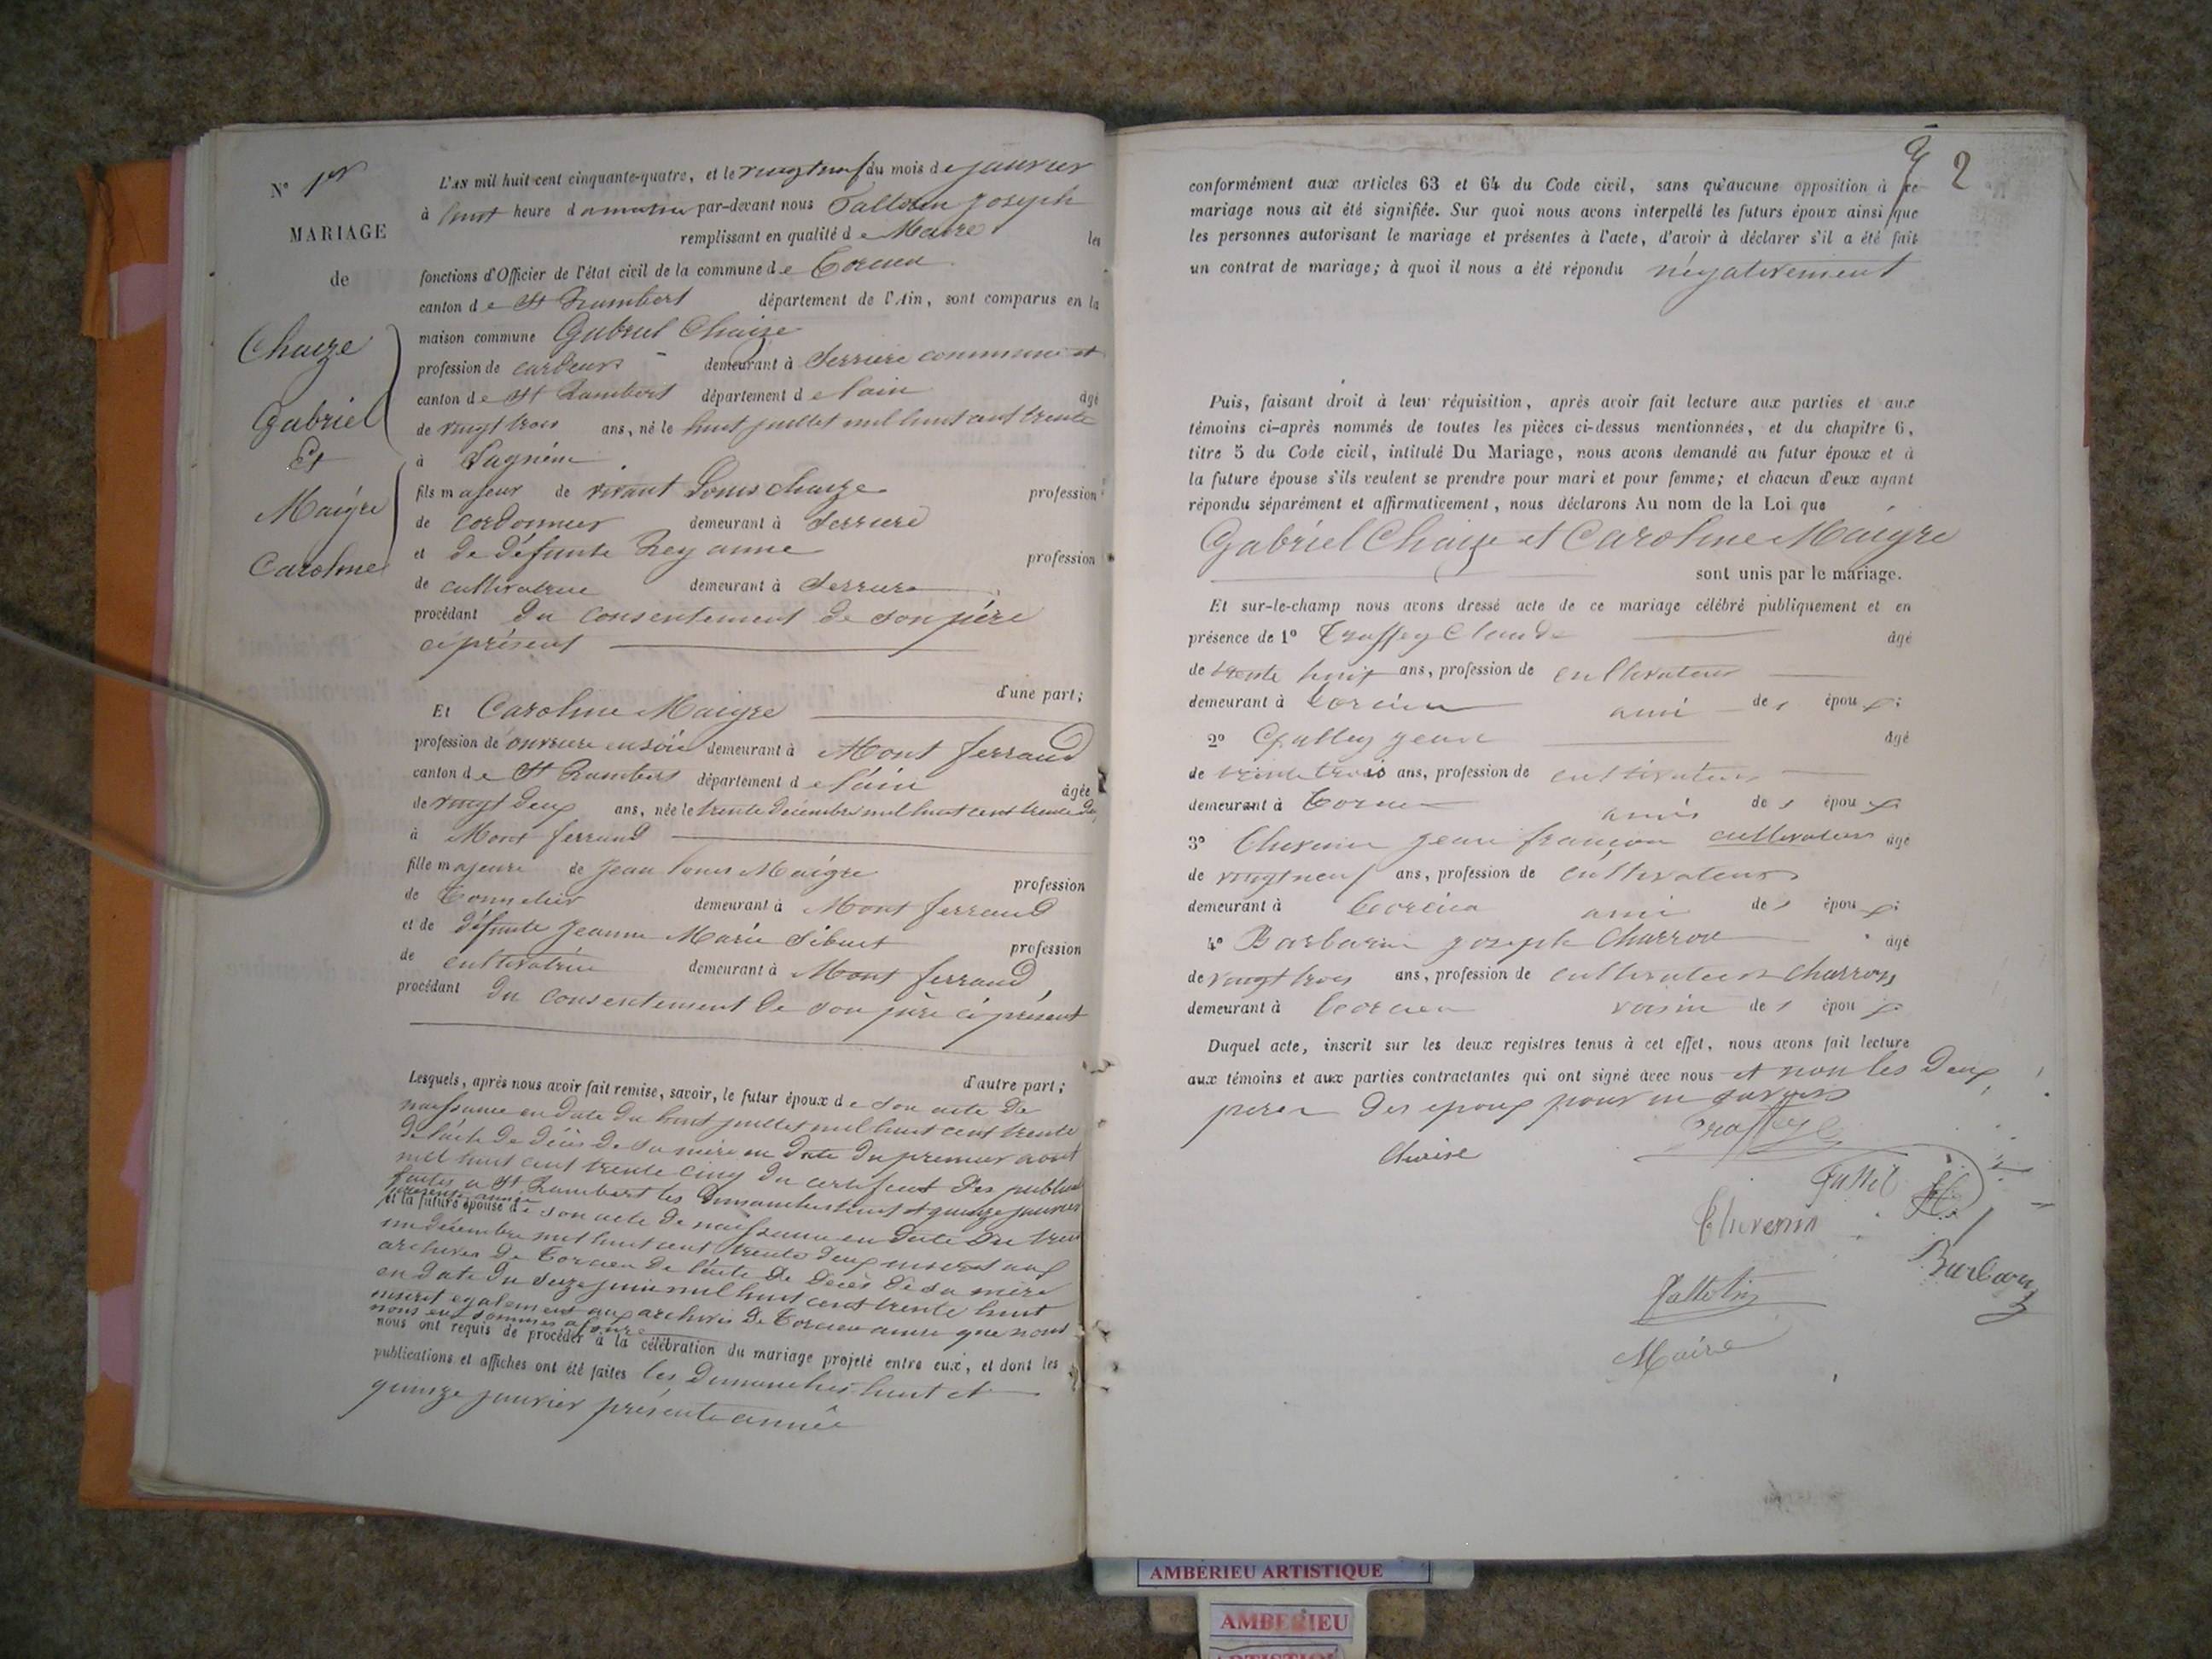 N° 1er
MARIAGE
de
Chaize
Gabriel
Et
Maigre
Caroline
L'AN mil huit cent cinquante-quatre, et le vingt neuf du mois de janvier
à huit heure du matin par-devant nous Joseph
remplissant en qualité de Maire les
fonctions d'Officier de l'état civil de la commune de Torcieu
canton de St Rambert département de l'Ain, sont comparus en la
maison commune Gabriel Chaize
profession de demeurant à Serriere commune et
canton de St Rambert département de l'ain âgé
de vingt trois ans, né le huit juillet mil huit cent trente
à
fils majeur de vivant Louis chaize profession
de cordonnier demeurant à Serriere
et de défunte Rey anne profession
de cultivatrice demeurant à Serriere
procédant du consentement de son père
ci présent
d'une part;
Et Caroline Maigre
profession de ouvriere en soie demeurant à Mont ferrand
canton de St Rambert département de l'ain âgée
de vingt deux ans, née le trente décembre mil huit cent trente
à Mont ferrand
fille majeure de Jean Louis Maigre profession
de Tonnelier demeurant à Mont ferrand
et de défunte Jeanne Marie Sibuet profession
de cultivatrice demeurant à Mont ferrand
procédant du consentement de son père ci présent
d'autre part;
Lesquels, après nous avoir fait remise, savoir, le futur époux de son acte de
naissance en date du huit juillet mil huit cent trente
de l'acte de décès de sa mère en date du premier aout
mil huit cent trente cinq du certificat des
faites a St Rambert les dimanches huit et quinze janvier
présente année
et la future épouse de son acte de naissance en date du
décembre mil huit cent trente deux inscrit aux
archives de Torcieu de l'acte de décès de sa mère
en date du seize juin mil huit cent trente huit
inscrit egalement aux archives de Torcieu que nous
nous en sommes
nous ont requis de procéder à la célébration du mariage projeté entre eux, et dont les
publications et affiches ont été faites les Dimanches huit et
quinze janvier présente année
2
conformément aux articles 63 et 64 du Code civil, sans qu'aucune opposition à ce
mariage nous ait été signifiée. Sur quoi nous avons interpellé les futurs époux ainsi que
les personnes autorisant le mariage et présentes à l'acte, d'avoir à déclarer s'il a été fait
un contrat de mariage; à quoi il nous a été répondu négativement
Puis, faisant droit à leur réquisition, après avoir fait lecture aux parties et aux
témoins ci-après nommés de toutes les pièces ci-dessus mentionnées, et du chapitre 6,
titre 5 du Code civil, intitulé Du Mariage, nous avons demandé au futur époux et à
la future épouse s'ils veulent se prendre pour mari et pour femme; et chacun d'eux ayant
répondu séparément et affirmativement, nous déclarons Au nom de la Loi que
Gabriel Chaize et Caroline Maigre
sont unis par le mariage.
Et sur-le-champ nous avons dressé acte de ce mariage célébré publiquement et en
présence de 1° Claude âgé
de trente huit ans, profession de cultivateur
demeurant à Torcieu ami des époux;
2° âgé
de trente trois ans, profession de cultivateur
demeurant à Torcieu amis des époux;
3° Chevenin jean françois cultivateur âgé
de vingt neuf ans, profession de cultivateur
demeurant à Torcieu ami des époux;
4° Barbarin joseph Charron âgé
de vingt trois ans, profession de cultivateur Charron
demeurant à Torcieu voisin des époux
Duquel acte, inscrit sur les deux registres tenus à cet effet, nous avons fait lecture
aux témoins et aux parties contractantes qui ont signé avec nous et non les deux
peres des epoux pour ne savoir
Chaise
Maire
AMBÉRIEU ARTISTIQUE
AMBERIEU
ARTISTIQUE